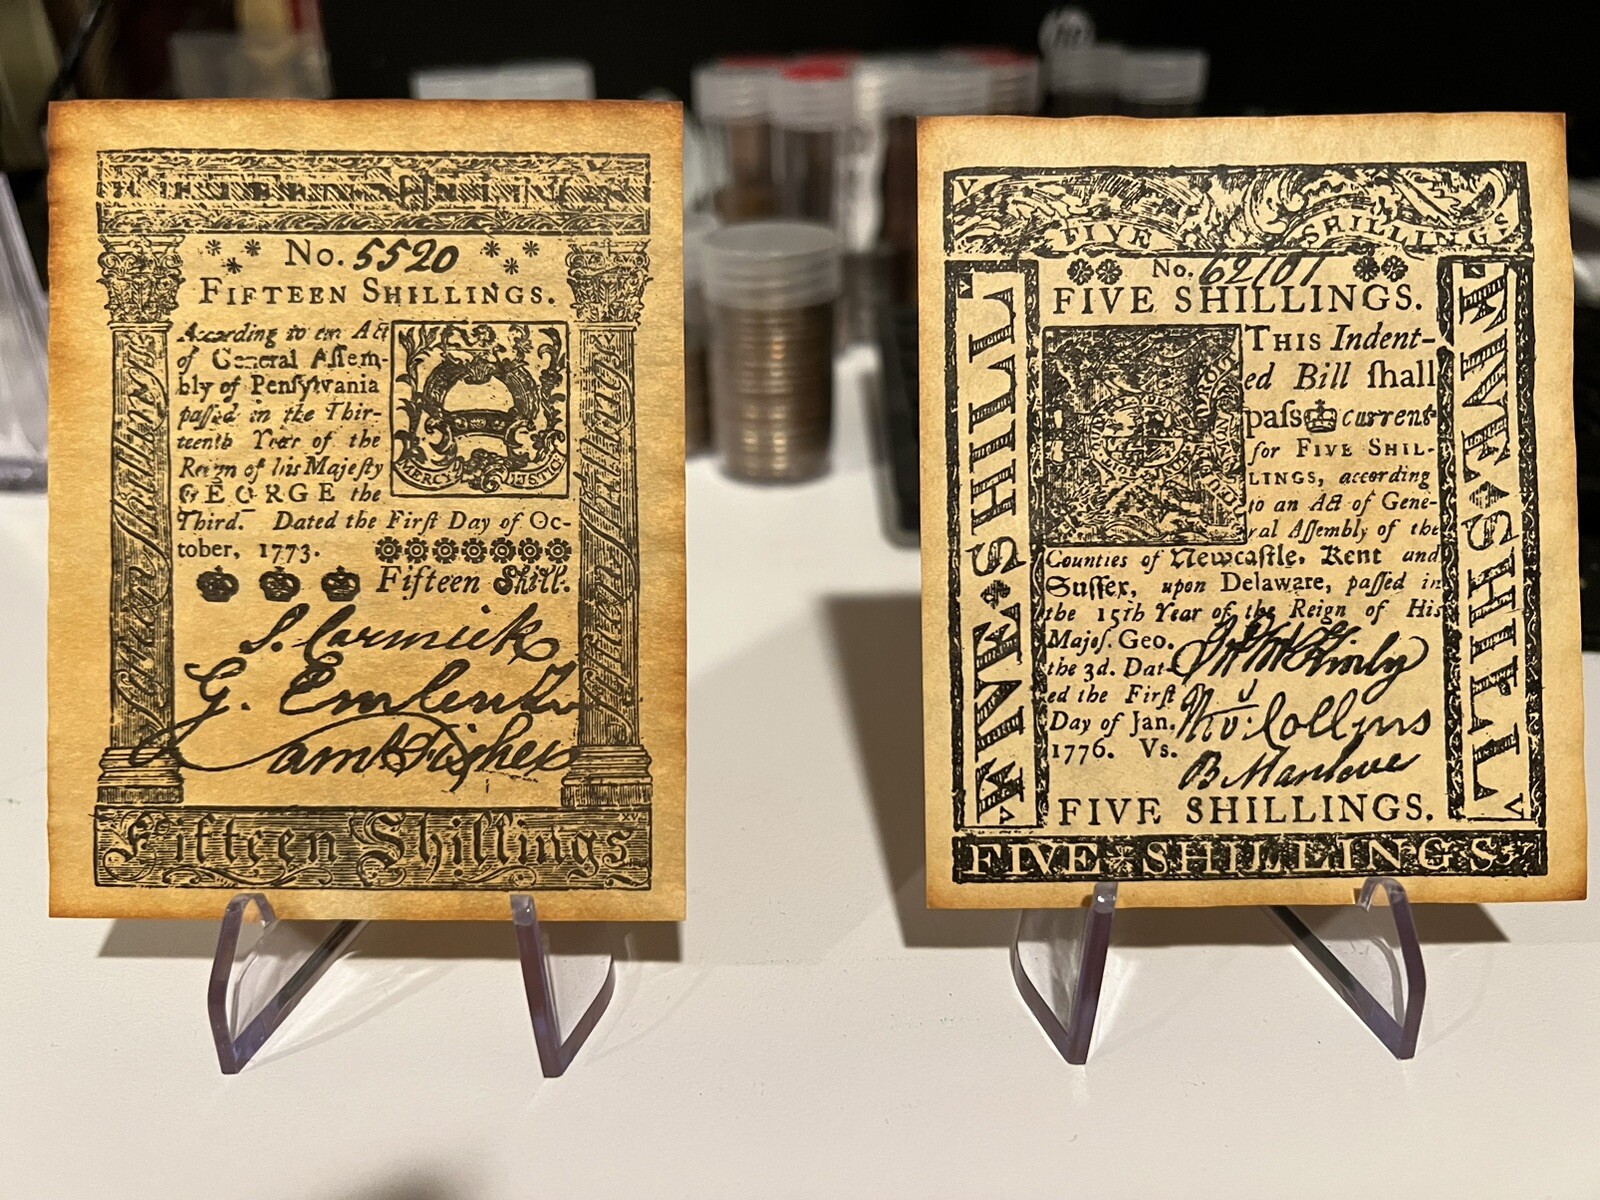 FIFTEEN SHILLINGS
No. 5520
FIFTEEN SHILLINGS.
According to an Act
of General Aſſem-
bly of Penſylvania
paſſed in the Thir-
teenth Year of the
Reign of his Majeſty
GEORGE the
Third. Dated the Firſt Day of Oc-
tober, 1773.
Fifteen Shill.
MERCY JUSTICE
Fifteen Shillings
Fifteen Shillings
S. Carmick
G. Emlen
Saml Fisher
XV
Fifteen Shillings
V
FIVE SHILLINGS
No. 62101
FIVE SHILLINGS.
THIS Indent-
ed Bill ſhall
paſs current
for FIVE SHIL-
LINGS, according
to an Act of Gene-
ral Aſſembly of the
Counties of Newcaſtle, Kent and
Suſſex, upon Delaware, paſſed in
the 15th Year of the Reign of His
Majeſ. Geo.
the 3d. Dat-
ed the Firſt
Day of Jan.
1776. Vs.
Jn McKinly
Collins
B Manlove
FIVE SHILLINGS.
FIVE SHILL
FIVE SHILL
FIVE SHILLINGS